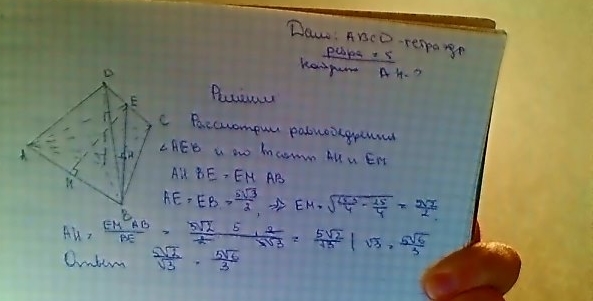 Дано: ABCD - тетраэдр
ребра = 5
Найти AH - ?
Решение
D
E
C
A
H
M
B
Рассмотрим равнобедренный
∠AEB и его высоты AH и EM
AH BE = EM AB
AE = EB = 5√3/2 ⇒ EM = √(75/4 - 25/4) = 5√2/2
AH = EM AB/BE = 5√2/2 · 5 · 2/5√3 = 5√2/√3 | √3 = 5√6/3
Ответ 5√2/√3 = 5√6/3